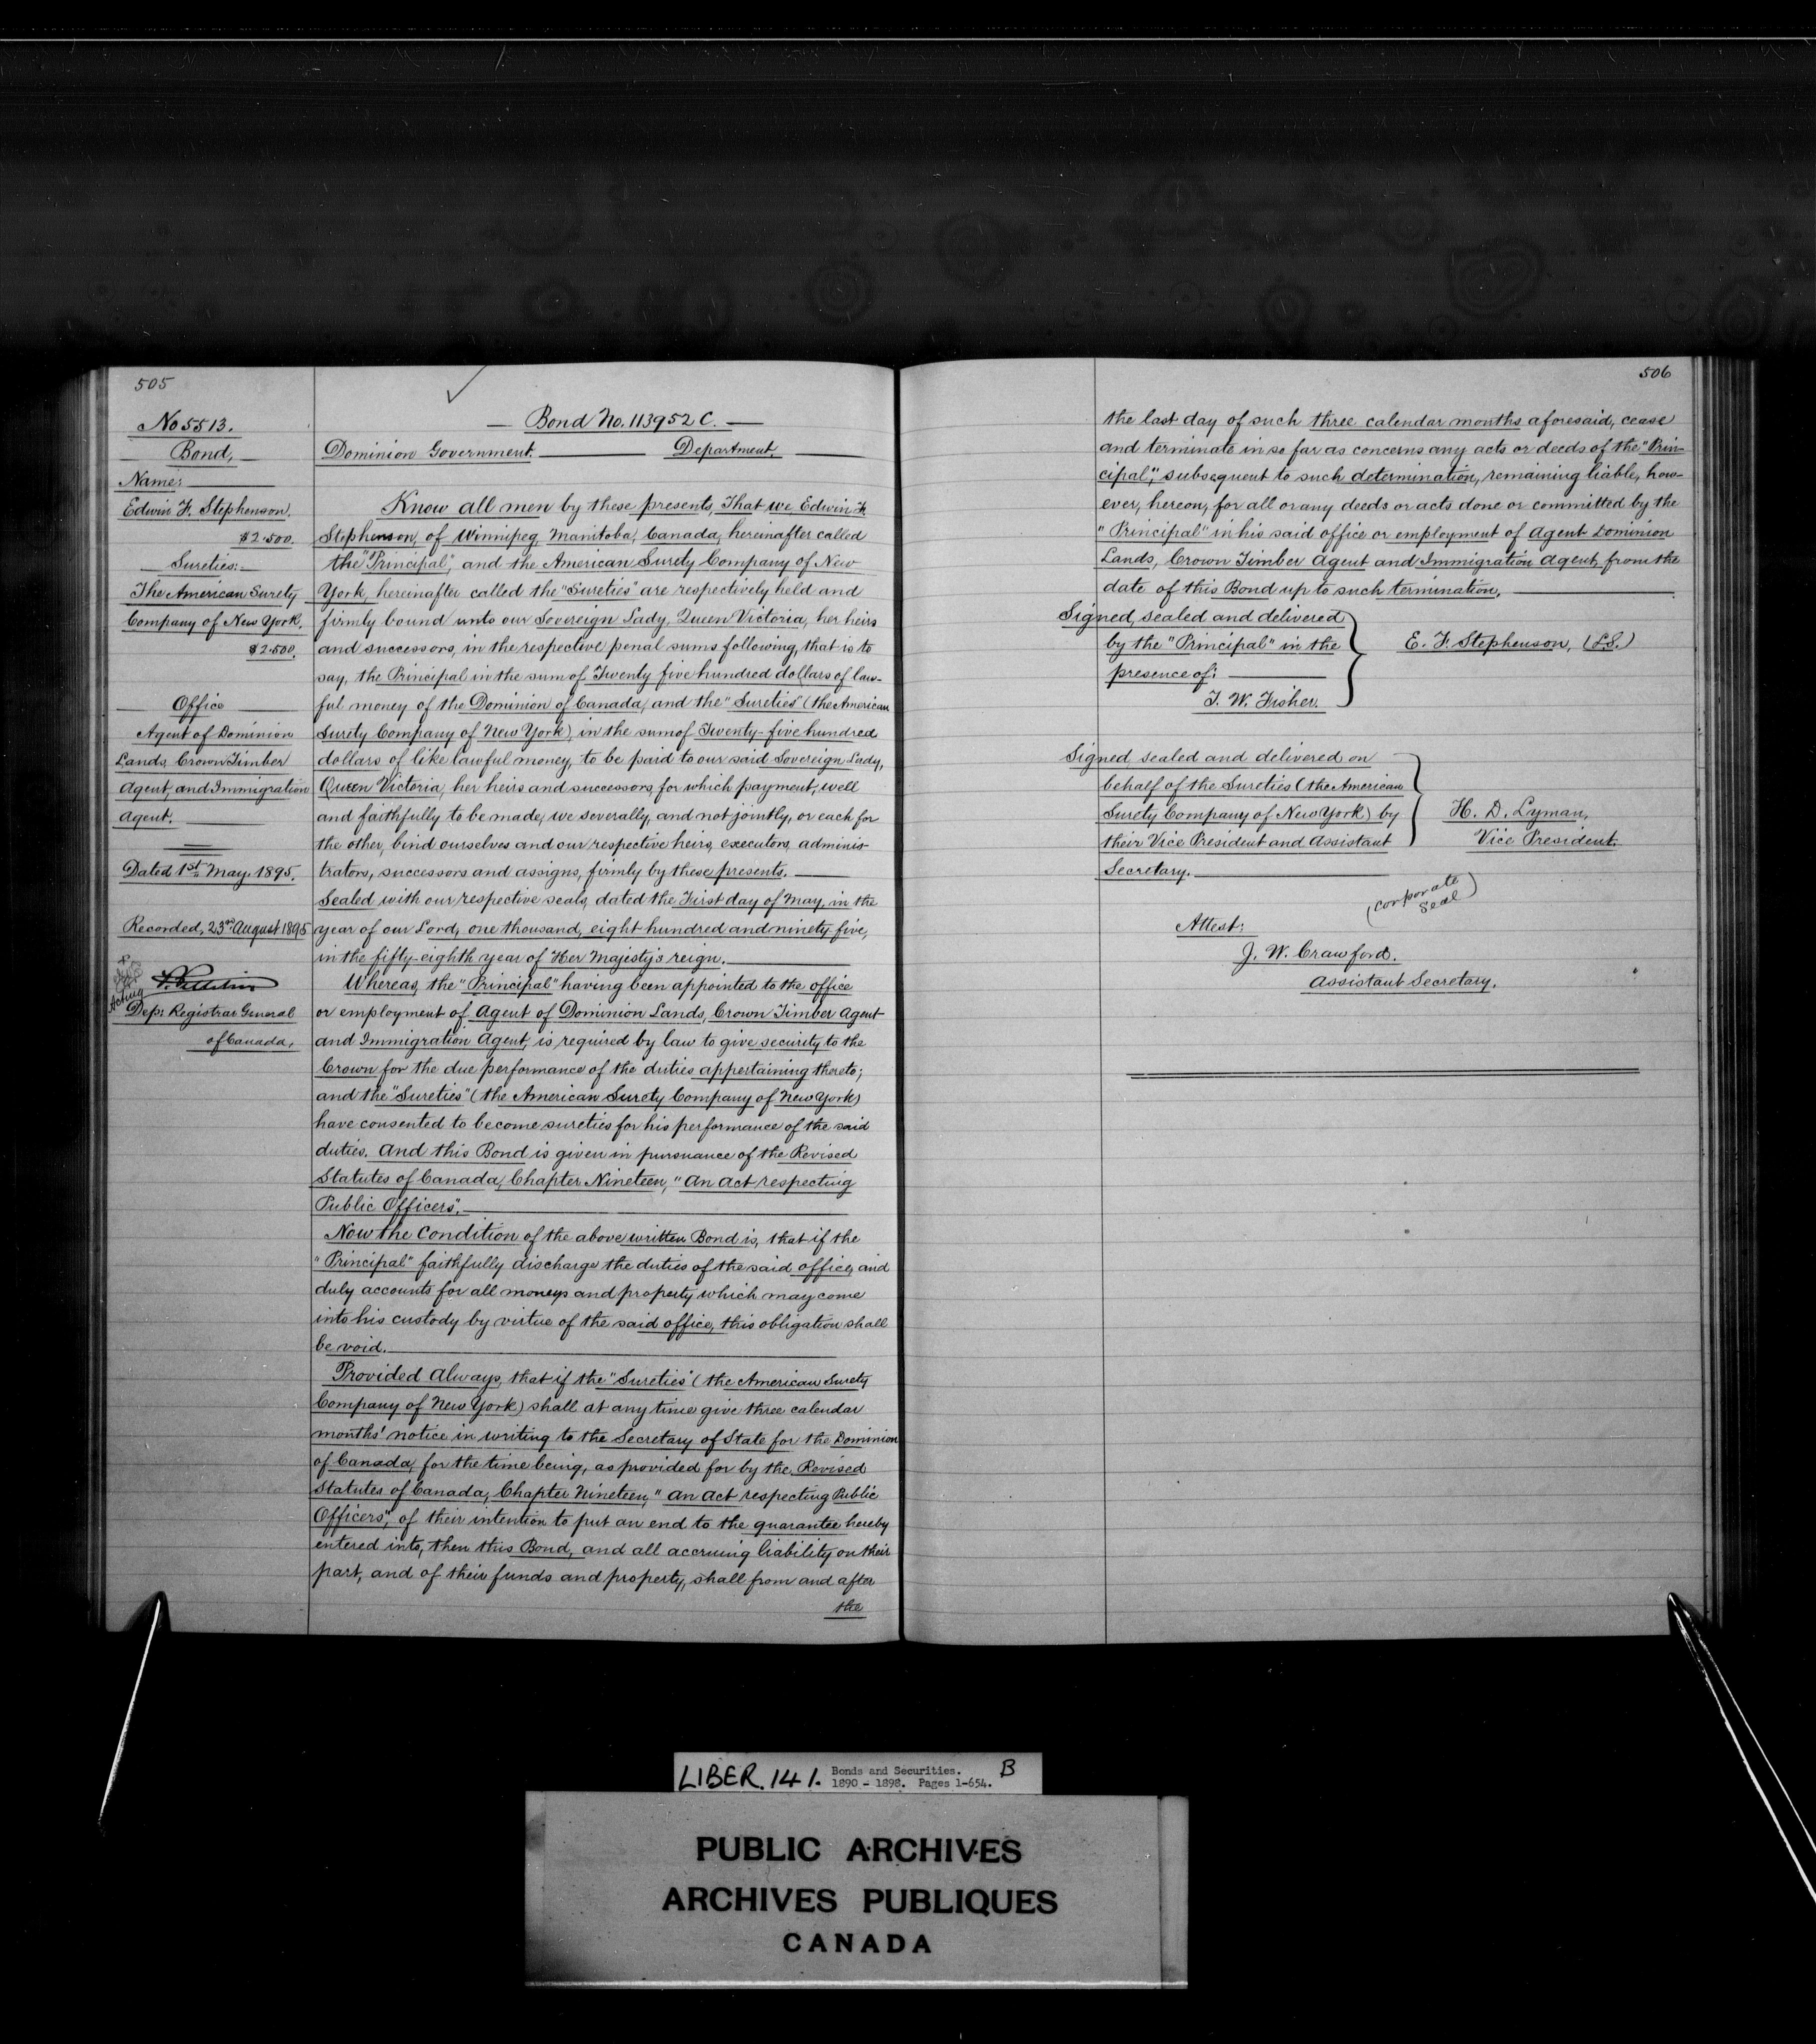 505
No 5513.
Bond,
Name:
Edwin F. Stephenson.
$2.500.
Sureties:
The American Surety
Company of New York.
$2.500.
Office
Agent of Dominion
Lands, Crown Timber
Agent, and Immigration
Agent.
Dated 1st May, 1895.
Recorded, 23rd August 1895
Acting
Dep: Registrar General
of Canada,
Bond No. 113952 C.
Dominion Government. Department.
Know all men by these presents, That we Edwin F.
Stephenson, of Winnipeg, Manitoba, Canada, hereinafter called
the "Principal", and the American Surety Company of New
York, hereinafter called the "Sureties" are respectively held and
firmly bound unto our Sovereign Lady, Queen Victoria, her heirs
and successors, in the respective penal sums following, that is to
say, the Principal in the sum of Twenty five hundred dollars of law-
ful money of the Dominion of Canada, and the "Sureties" (the American
Surety Company of New York) in the sum of Twenty-five hundred
dollars of like lawful money, to be paid to our said Sovereign Lady,
Queen Victoria, her heirs and successors, for which payment, well
and faithfully to be made, we severally, and not jointly, or each for
the other, bind ourselves and our respective heirs, executors, adminis-
trators, successors and assigns, firmly by these presents.
Sealed with our respective seals, dated the First day of May, in the
year of our Lord, one thousand, eight hundred and ninety five,
in the fifty-eighth year of Her Majesty's reign.
Whereas, the "Principal" having been appointed to the office
or employment of Agent of Dominion Lands, Crown Timber Agent
and Immigration Agent, is required by law to give security to the
Crown for the due performance of the duties appertaining thereto;
and the "Sureties" (the American Surety Company of New York)
have consented to become sureties for his performance of the said
duties. And this Bond is given in pursuance of the Revised
Statutes of Canada, Chapter Nineteen, "An Act respecting
Public Officers".
Now the Condition of the above written Bond is, that if the
"Principal" faithfully discharge the duties of the said office, and
duly accounts for all moneys and property which may come
into his custody by virtue of the said office, this obligation shall
be void.
Provided Always, that if the "Sureties" (the American Surety
Company of New York) shall at any time give three calendar
months' notice in writing to the Secretary of State for the Dominion
of Canada, for the time being, as provided for by the Revised
Statutes of Canada, Chapter Nineteen, "An Act respecting Public
Officers", of their intention to put an end to the guarantee hereby
entered into, then this Bond, and all accruing liability on their
part, and of their funds and property, shall from and after
the
506
the last day of such three calendar months aforesaid, cease
and terminate in so far as concerns any acts or deeds of the "Prin-
cipal", subsequent to such determination, remaining liable, how-
ever, hereon, for all or any deeds or acts done or committed by the
"Principal" in his said office or employment of Agent Dominion
Lands, Crown Timber Agent and Immigration Agent, from the
date of this Bond up to such termination.
Signed, sealed and delivered
by the "Principal" in the
presence of:
T. W. Fisher.
E. F. Stephenson, (L.S.)
Signed sealed and delivered on
behalf of the Sureties (the American
Surety Company of New York) by
their Vice President and Assistant
Secretary.
H. D. Lyman,
Vice President.
(corporate
seal)
Attest:
J. W. Crawford.
Assistant Secretary.
LIBER. 141. Bonds and Securities. B
1890 - 1898. Pages 1-654.
PUBLIC ARCHIVES
ARCHIVES PUBLIQUES
CANADA